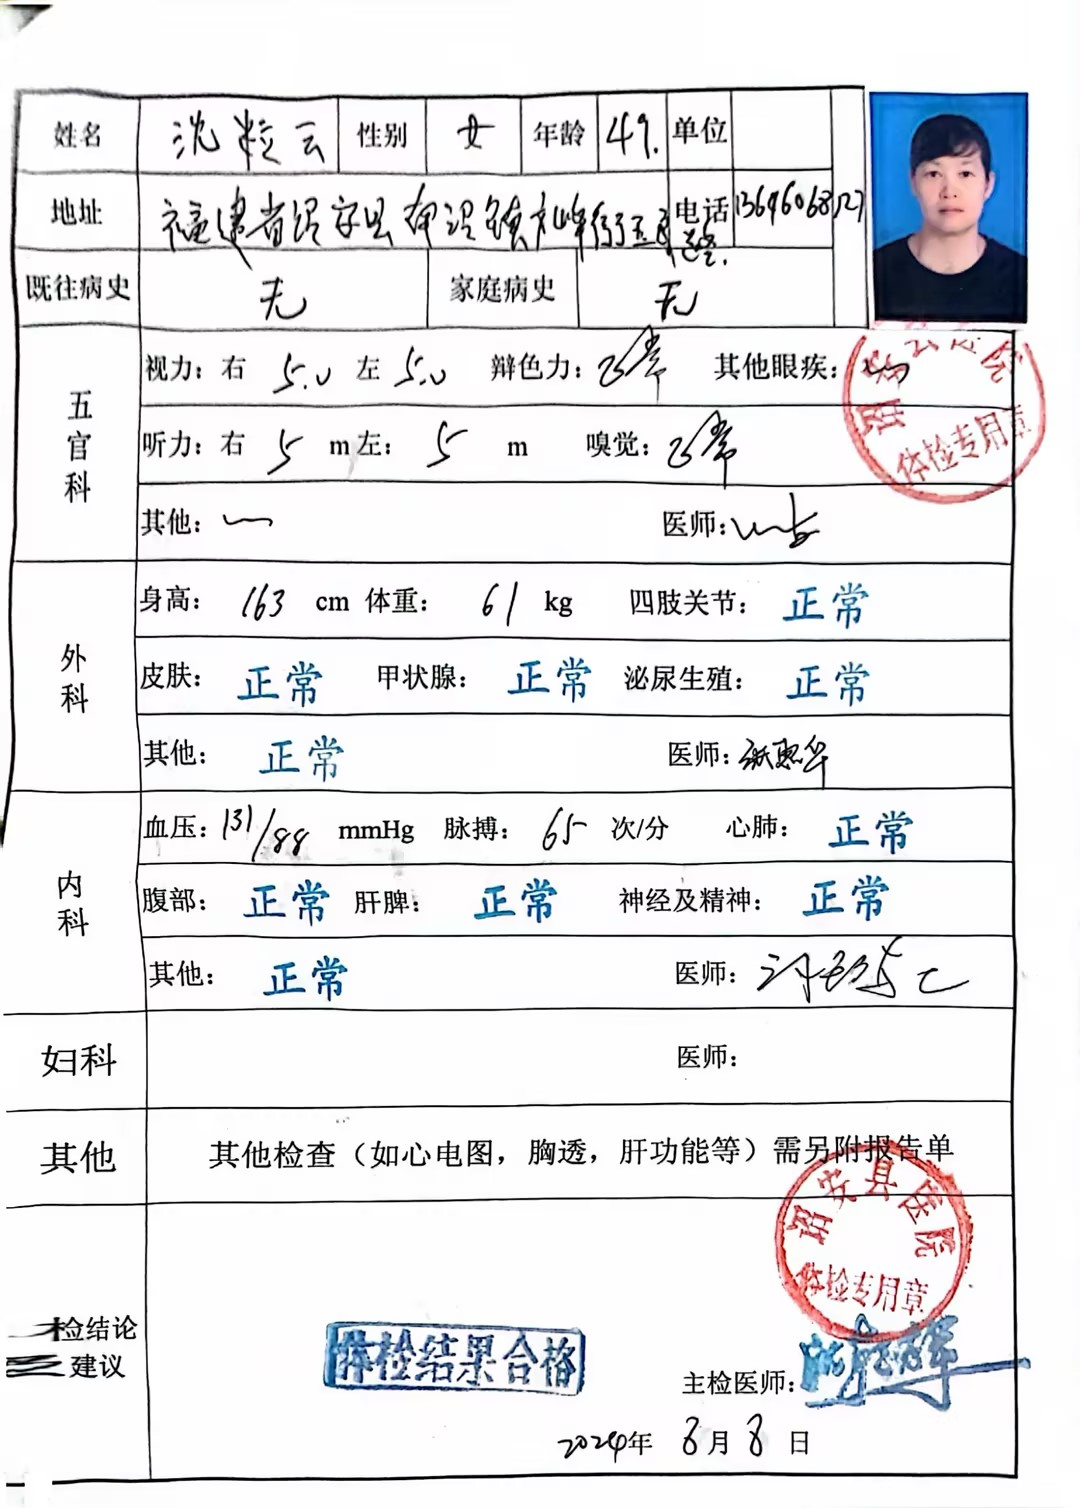 姓名 沈粒云 性别 女 年龄 49. 单位
地址 福建省诏安县 电话
既往病史 无 家庭病史 无
五官科
视力：右 5.0 左 5.0 辩色力：正常 其他眼疾：
医院
体检专用章
听力：右 5 m左：5 m 嗅觉：正常
其他： 医师：
外科
身高：163 cm 体重：61 kg 四肢关节：正常
皮肤：正常 甲状腺：正常 泌尿生殖：正常
其他：正常 医师：
内科
血压：131/88 mmHg 脉搏：65 次/分 心肺：正常
腹部：正常 肝脾：正常 神经及精神：正常
其他：正常 医师：
妇科 医师：
其他 其他检查（如心电图，胸透，肝功能等）需另附报告单
诏安县医院
体检专用章
检结论
建议
体检结果合格
主检医师：
2024年 8月 8日